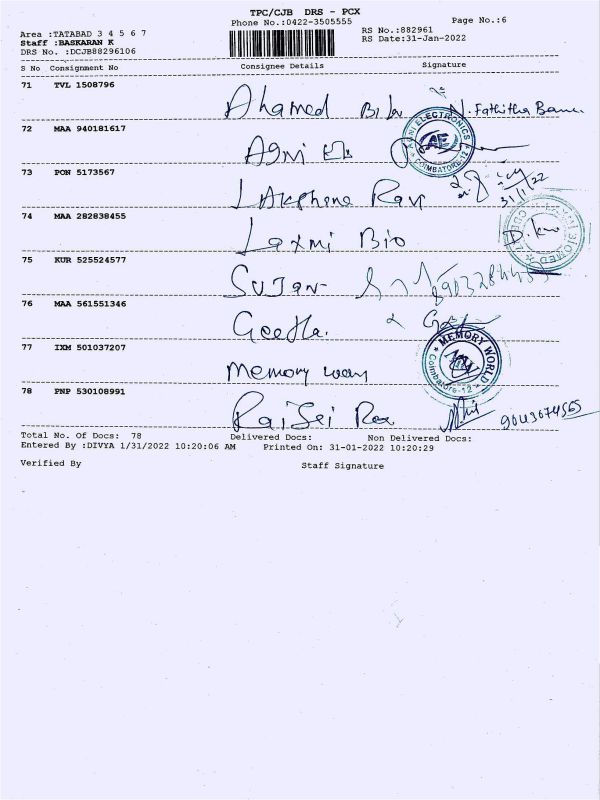 TPC/CJB DRS - PCX
Phone No.:0422-3505555
Page No.:6
Area :TATABAD 3 4 5 6 7
Staff :BASKARAN K
DRS No. :DCJB88296106
RS No.:882961
RS Date:31-Jan-2022
S No Consignment No Consignee Details Signature
71 TVL 1508796 Ahamed N. Fathitha Banu
72 MAA 940181617 Agni AGNI ELECTRONICS AE COIMBATORE-12
73 PON 5173567 Lakshana 31/1/22
74 MAA 282838455 Laxmi Bio
75 KUR 525524577 Sujan
76 MAA 561551346 Geetha.
77 IXM 501037207 memory MEMORY WORLD Coimbatore-12
78 PNP 530108991 9043074565
Total No. Of Docs: 78 Delivered Docs: Non Delivered Docs:
Entered By :DIVYA 1/31/2022 10:20:06 AM Printed On: 31-01-2022 10:20:29
Verified By Staff Signature